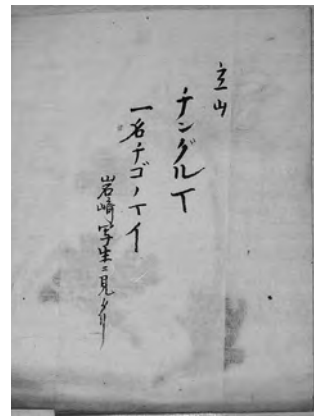 立山
チングルマ
一名チゴノマイ
岩崎写生ニ見タリ